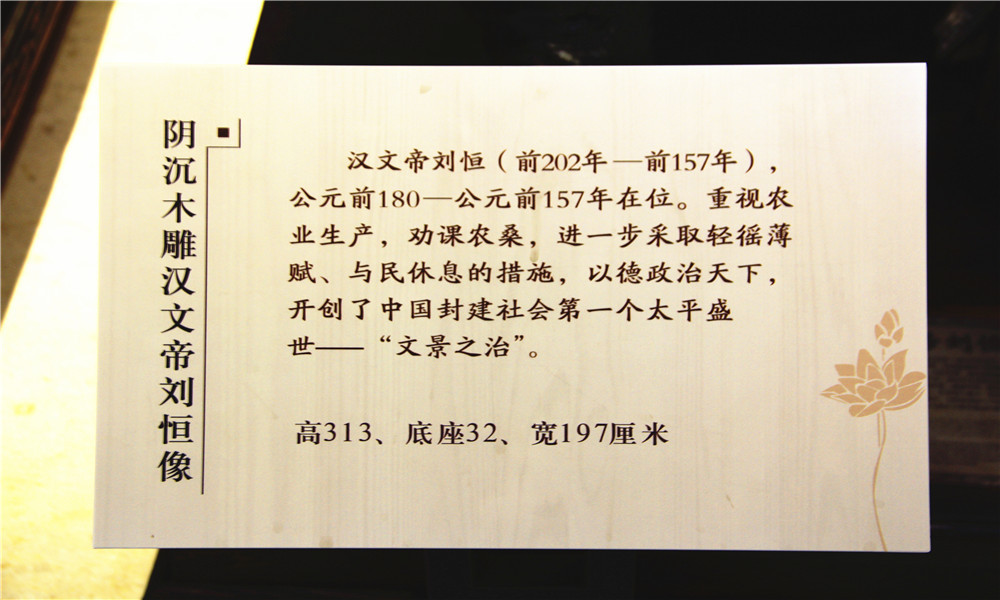 阴沉木雕汉文帝刘恒像
汉文帝刘恒（前202年—前157年），
公元前180—公元前157年在位。重视农
业生产，劝课农桑，进一步采取轻徭薄
赋、与民休息的措施，以德政治天下，
开创了中国封建社会第一个太平盛
世——“文景之治”。
高313、底座32、宽197厘米